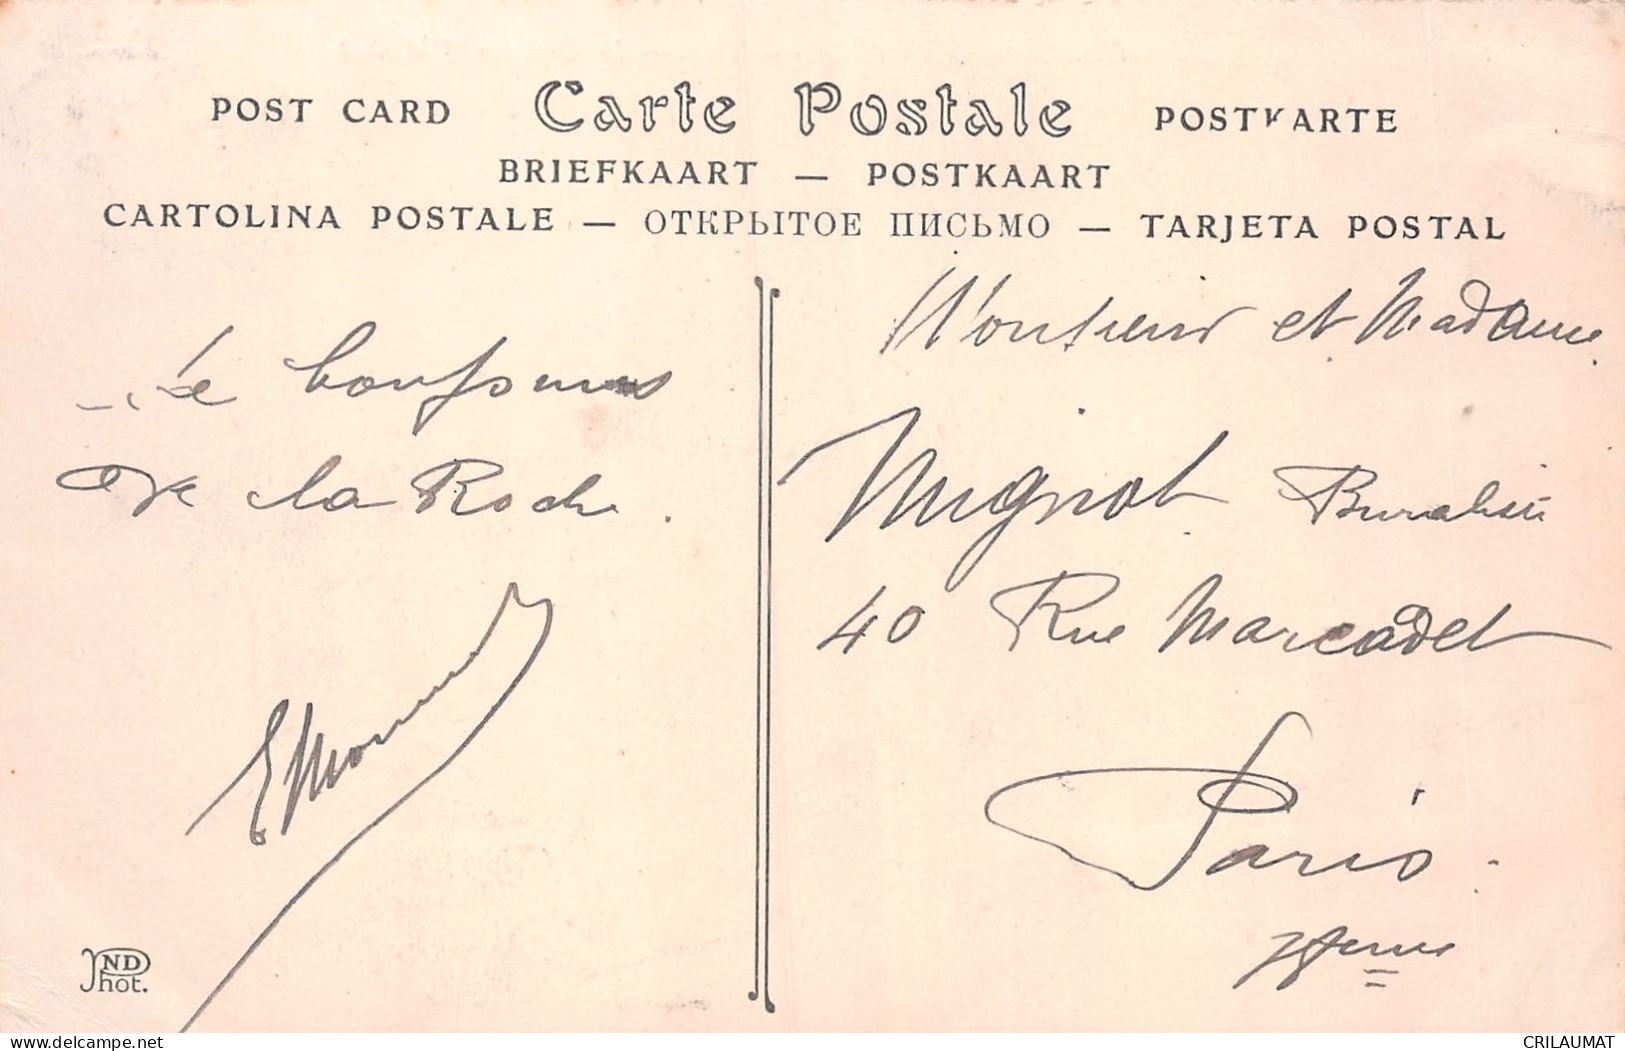 POST CARD Carte Postale POSTKARTE
BRIEFKAART — POSTKAART
CARTOLINA POSTALE — ОТКРЫТОЕ ПИСЬМО — TARJETA POSTAL
Le
de la Roche.
ND
Phot.
Monsieur et Madame
Mignot Buraliste
40 Rue Marcadet
Paris.
18eme
www.delcampe.net
CRILAUMAT